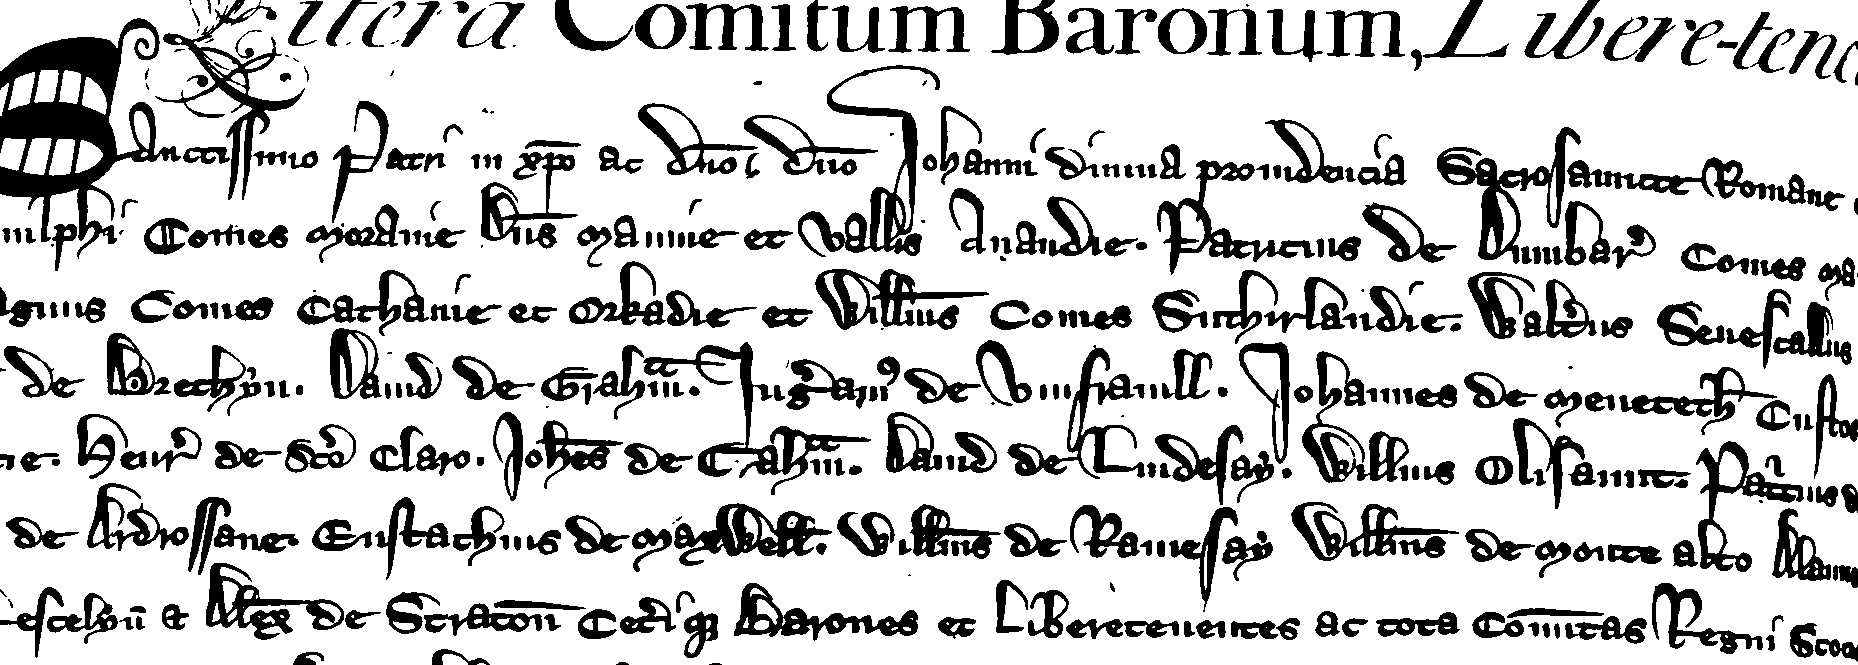 Litera Comitum Baronum, Libere-ten
Sanctissimo Patri in xp̄o ac dn̄o / dn̄o Johanni diuina prouidencia Sacrosauncte Romane
nulphi Comes morauie Dn̄s mannie et vallis Anandie. Patricius de Dumbar̕ Comes ma
agnus Comes Cathanie et Orkadie et Will̄ms Comes Suthirlandie. Walt̕us Senescallus
de Brechyn. Dauid de Grah̄m. Ing̕amꝰ de Vmfrauill. Johannes de menetet̄h Custos
cie. Henr̕ de sc̄o Claro. Joh̄es de Grah̄m. Dauid de Lindesaẏ. Willms Olifaunt. Patͥcius d
de Ardrossane. Eustachius de maxWell. Will̄ms de Ramesaẏ Will̄ms de monte alto Alanus
Lescelyn̄ & Alex̄ de Straton̄ Cet̕iqꝫ Barones et Liberetenentes ac tota Com̄itas Regni Scoc